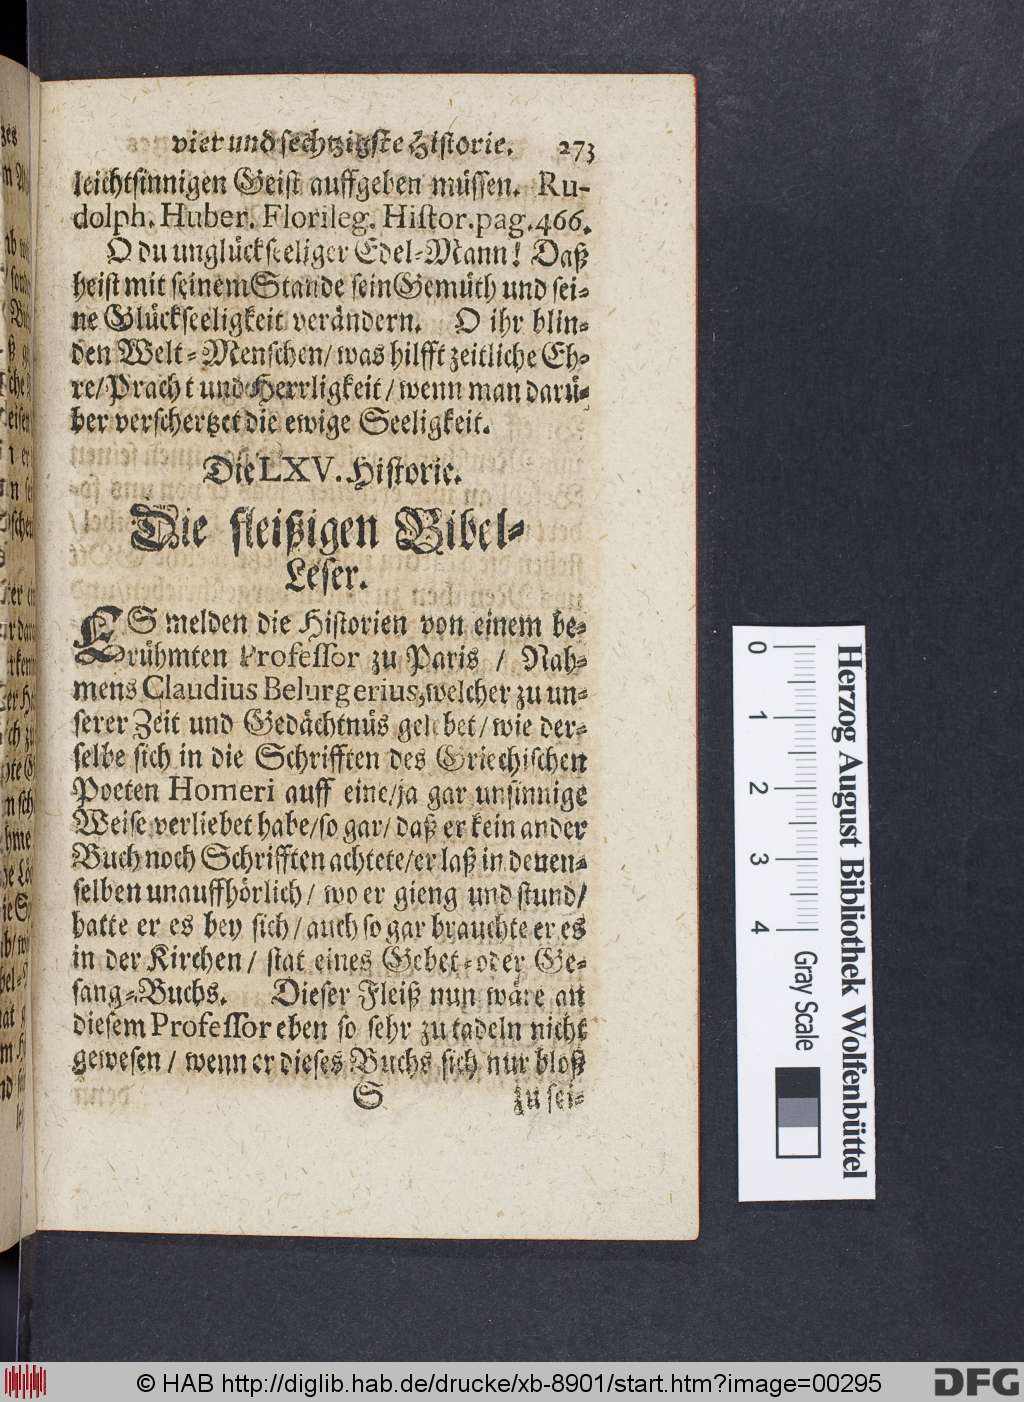 vier und sechtzigste Historie. 273
leichtsinnigen Geist auffgeben müssen. Ru-
dolph. Huber. Florileg. Histor. pag. 466.
O du unglückseeliger Edel-Mann! Daß
heist mit seinem Stande sein Gemüth und sei-
ne Glückseeligkeit verändern. O ihr blin-
den Welt-Menschen/ was hilfft zeitliche Eh-
re/ Pracht und Herrligkeit/ wenn man darü-
ber verschertzet die ewige Seeligkeit.
Die LXV. Historie.
Die fleißigen Bibel-
Leser.
ES melden die Historien von einem be-
rühmten Professor zu Paris / Nah-
mens Claudius Belurgerius, welcher zu un-
serer Zeit und Gedächtnüs gelebet/ wie der-
selbe sich in die Schrifften des Griechischen
Poeten Homeri auff eine/ ja gar unsinnige
Weise verliebet habe/ so gar/ daß er kein ander
Buch noch Schrifften achtete/ er laß in denen-
selben unauffhörlich/ wo er gieng und stund/
hatte er es bey sich/ auch so gar brauchte er es
in der Kirchen/ stat eines Gebet- oder Ge-
sang-Buchs. Dieser Fleiß nun wäre an
diesem Professor eben so sehr zu tadeln nicht
gewesen/ wenn er dieses Buchs sich nur bloß
S zu sei-
0 1 2 3 4
Gray Scale
Herzog August Bibliothek Wolfenbüttel
© HAB http://diglib.hab.de/drucke/xb-8901/start.htm?image=00295
DFG